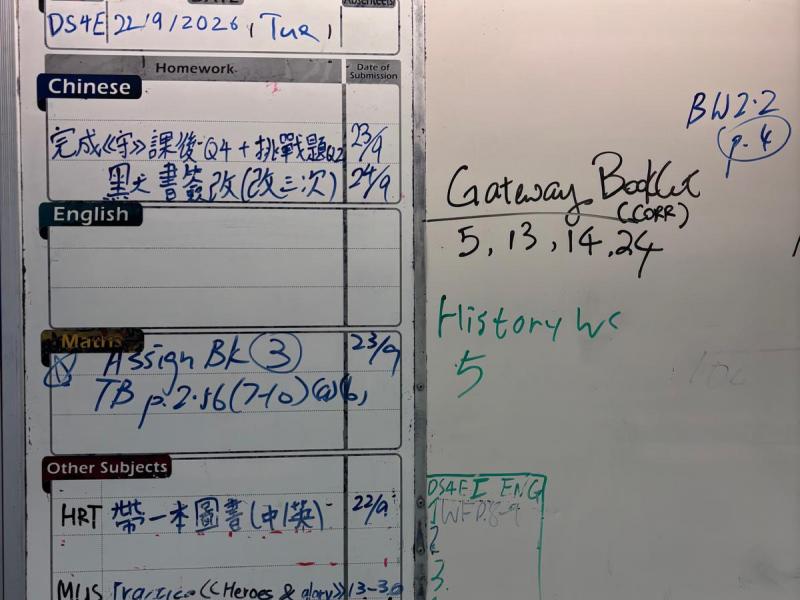 DATE
Absentees
DS4E 22/9/2026, Tue,
Homework
Date of Submission
Chinese
完成《守》課後Q4 + 挑戰題Q2 23/9
書簽改(改三次) 24/9
English
Maths
Assign Bk ③ 23/9
TB p.2.56(7-10)(a)(b)
Other Subjects
HRT 帶一本圖書(中/英) 22/9
MUS Practice《Heroes & glory》
BW2.2
p.4
Gateway Booklet
(CORR)
5, 13, 14, 24
History WS
5
DS4E I ENG
1
2
3